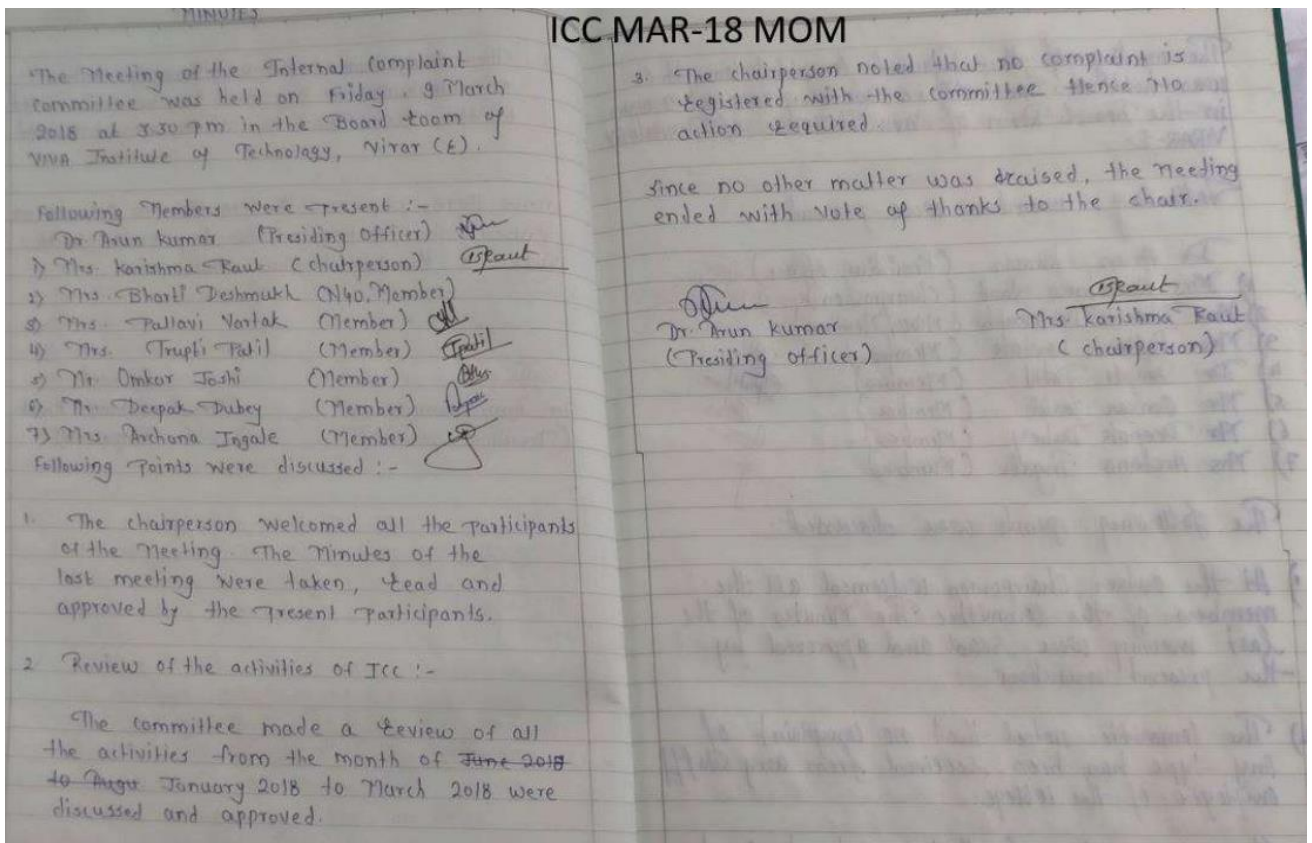 MINUTES
ICC MAR-18 MOM
The Meeting of the Internal Complaint
Committee was held on Friday, 9 March
2018 at 3.30 pm in the Board room of
VIVA Institute of Technology, Virar (E).
Following Members were present :-
Dr. Arun Kumar (Presiding Officer)
1) Mrs. Karishma Raut (chairperson) KRaut
2) Mrs. Bharti Deshmukh (NGO, Member)
3) Mrs. Pallavi Vartak (Member)
4) Mrs. Trupti Patil (Member) Tpatil
5) Mr. Omkar Joshi (Member)
6) Mr. Deepak Dubey (Member)
7) Mrs. Archana Ingale (Member)
Following Points were discussed :-
1. The chairperson welcomed all the Participants
of the Meeting. The Minutes of the
last meeting were taken, read and
approved by the present Participants.
2 Review of the activities of ICC :-
The committee made a review of all
the activities from the month of June 2018
to Augu January 2018 to March 2018 were
discussed and approved.
3. The chairperson noted that no complaint is
registered with the committee Hence No
action required.
Since no other matter was draised, the meeting
ended with vote of thanks to the chair.
Dr. Arun Kumar
(Presiding officer)
KRaut
Mrs. Karishma Raut
(chairperson)